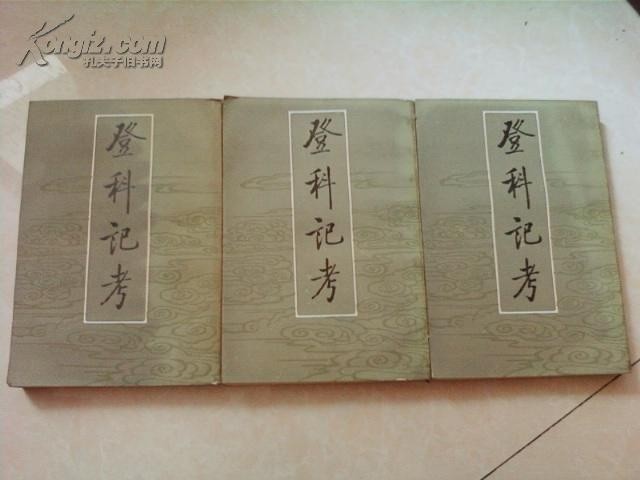 Kongfz.com
孔夫子旧书网
登科记考
登科记考
登科记考